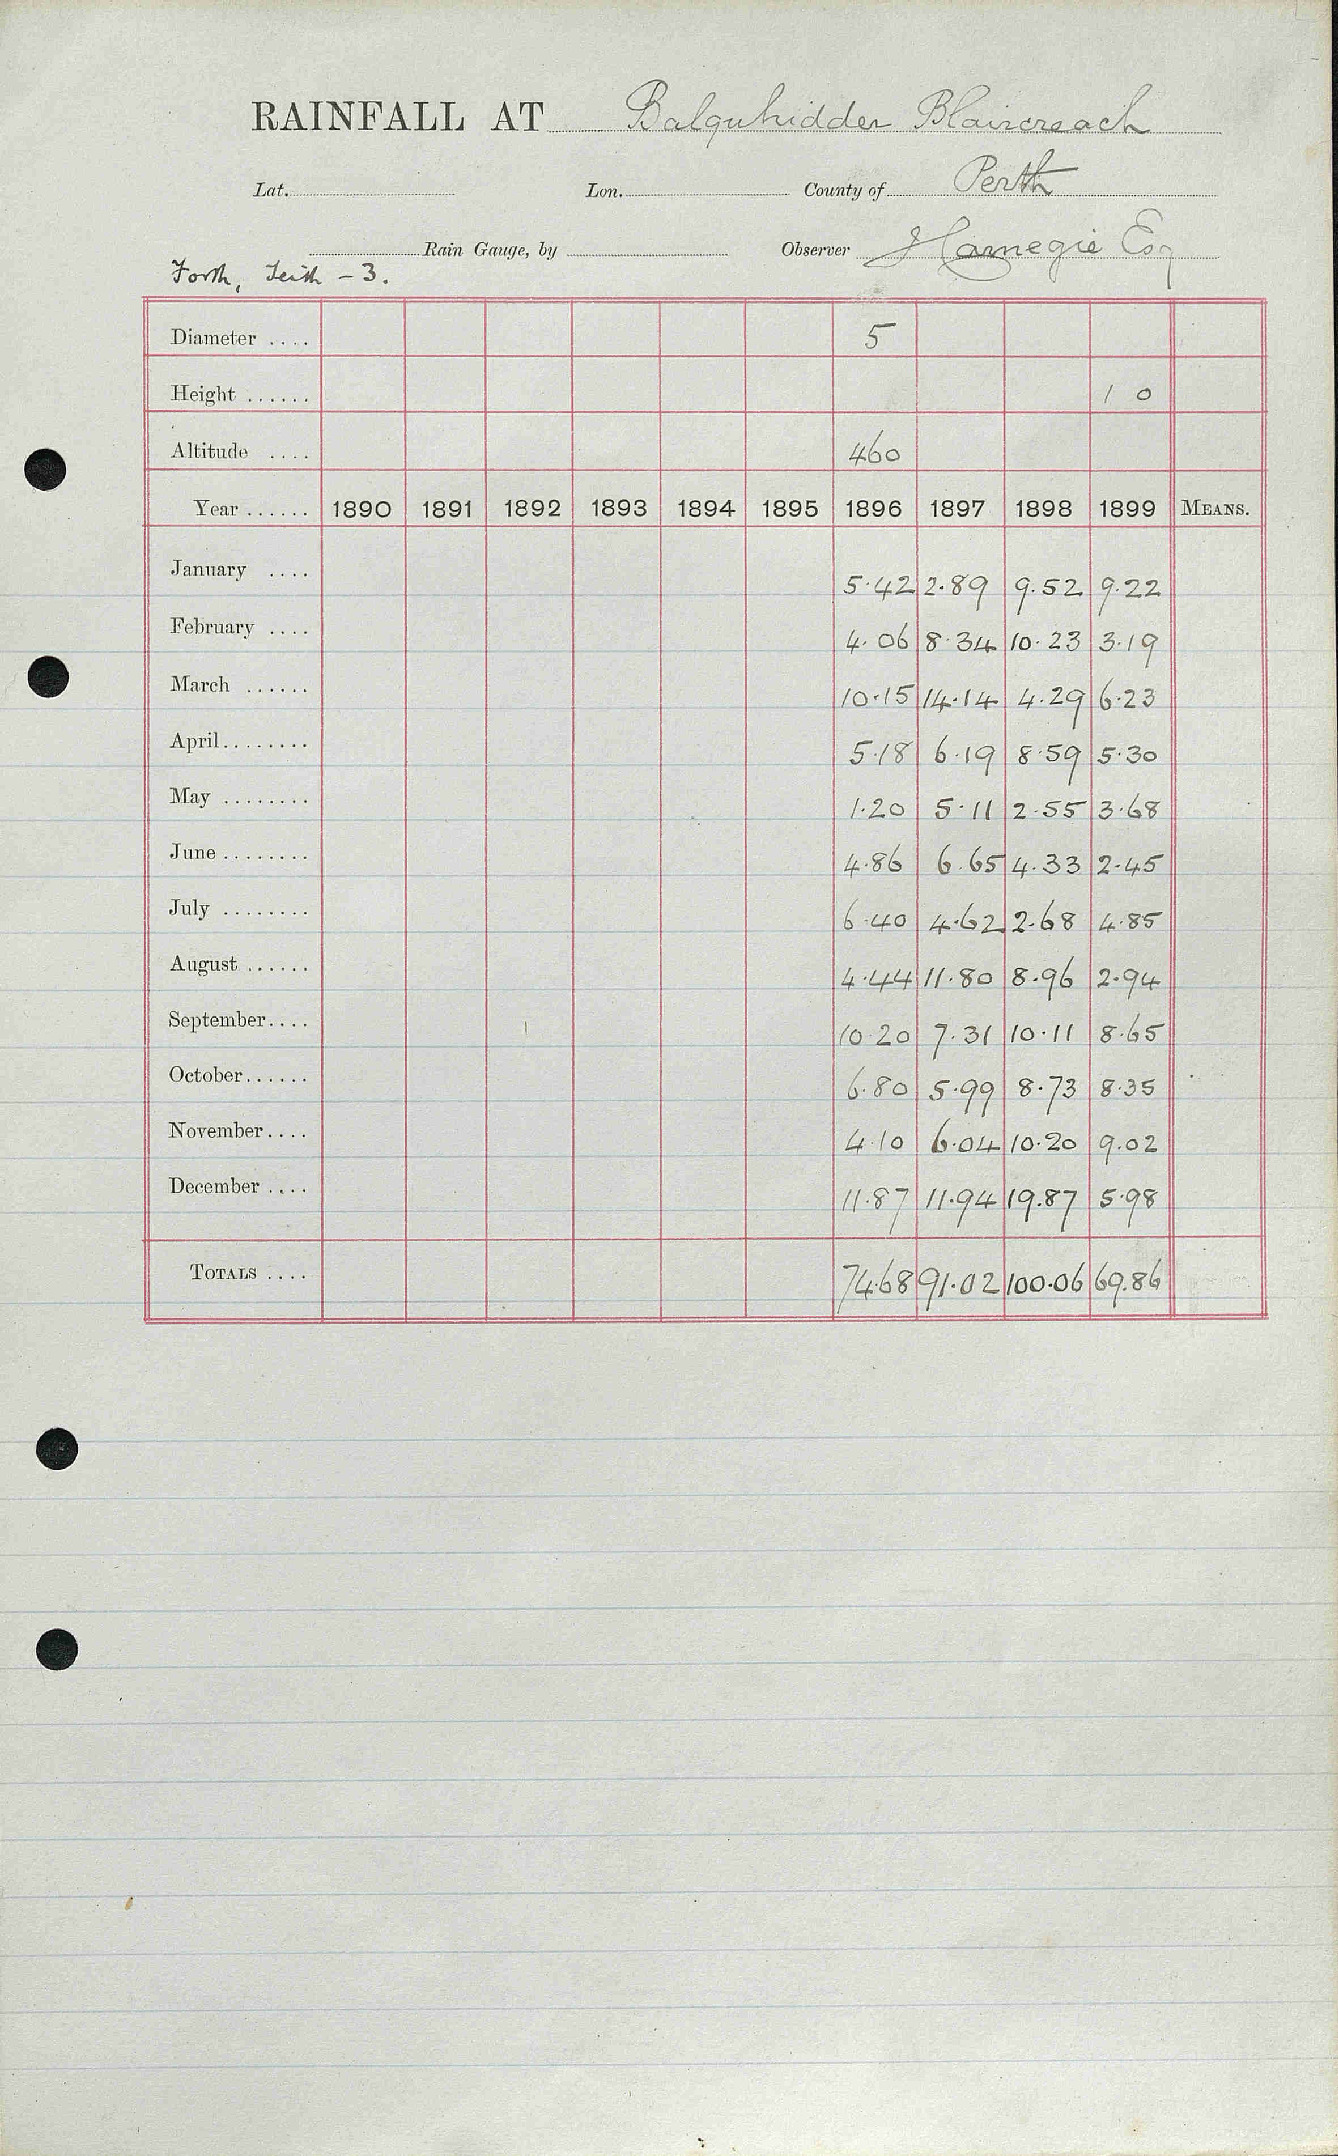 RAINFALL AT Balquhidder Blaircreach
Lat. Lon. County of Perth
Rain Gauge, by Observer J Carnegie Esq
Forth, Teith - 3.
Diameter .... 5
Height ...... 1 0
Altitude .... 460
Year ...... 1890 1891 1892 1893 1894 1895 1896 1897 1898 1899 MEANS.
January .... 5.42 2.89 9.52 9.22
February .... 4.06 8.34 10.23 3.19
March ...... 10.15 14.14 4.29 6.23
April ........ 5.18 6.19 8.59 5.30
May ........ 1.20 5.11 2.55 3.68
June ........ 4.86 6.65 4.33 2.45
July ........ 6.40 4.62 2.68 4.85
August ...... 4.44 11.80 8.96 2.94
September .... 10.20 7.31 10.11 8.65
October ...... 6.80 5.99 8.73 8.35
November .... 4.10 6.04 10.20 9.02
December .... 11.87 11.94 19.87 5.98
TOTALS .... 74.68 91.02 100.06 69.86